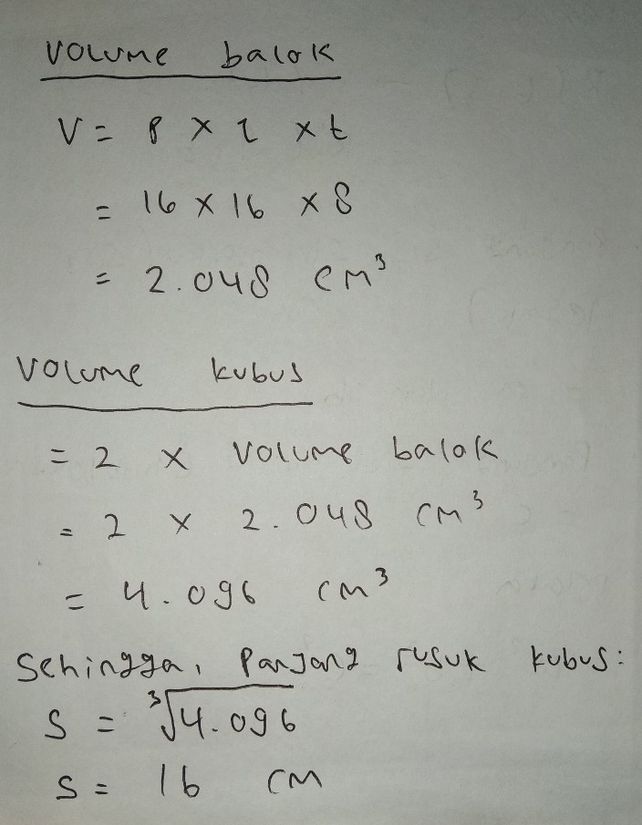 Volume balok
V = p x l x t
= 16 x 16 x 8
= 2.048 cm³
Volume kubus
= 2 x Volume balok
= 2 x 2.048 cm³
= 4.096 cm³
Sehingga, Panjang rusuk kubus:
S = ³√4.096
S = 16 cm